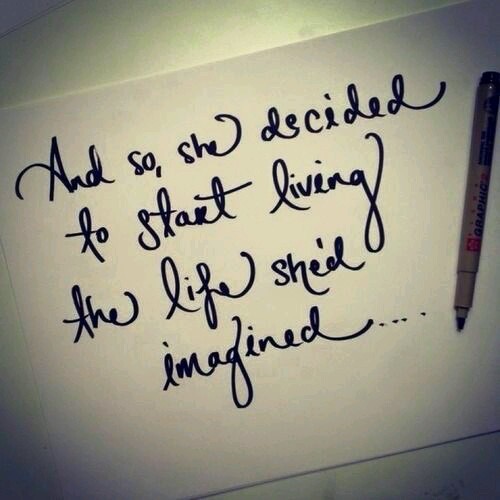 And so, she decided
to start living
the life she'd
imagined.....
GRAPHIC